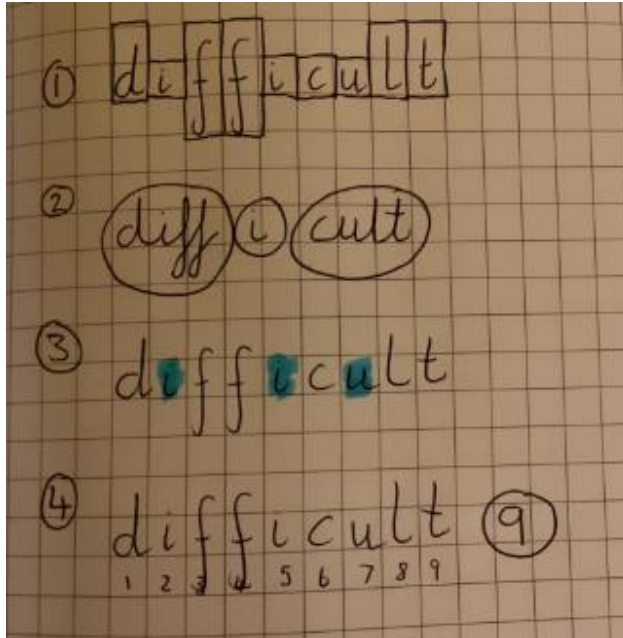 ① difficult
② diff i cult
③ difficult
④ difficult ⑨
1 2 3 4 5 6 7 8 9